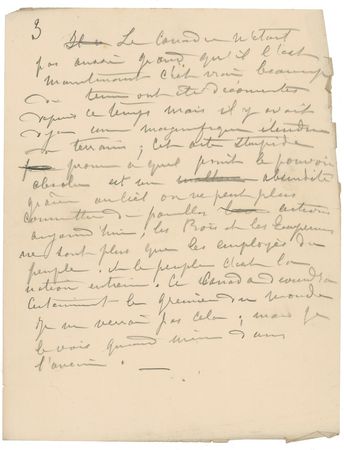 3 Le Canada n'était
pas aussi grand qu'il l'est
maintenant c'est vrai, beaucoup
de terres ont été découvertes
depuis ce temps mais il y avait
déjà une magnifique étendue
de terrain; cet acte stupide
prouve à quel point le pouvoir
absolu est une absurdité
grâce au ciel on ne peut plus
commettre de pareilles actions
aujourd'hui, les Rois et les Empereurs
ne sont plus que les employés du
peuple et le peuple c'est la
nation entière. Le Canada deviendra
certainement le grenier du monde
Je ne verrai pas cela, mais je
le vois quand même dans
l'avenir. —